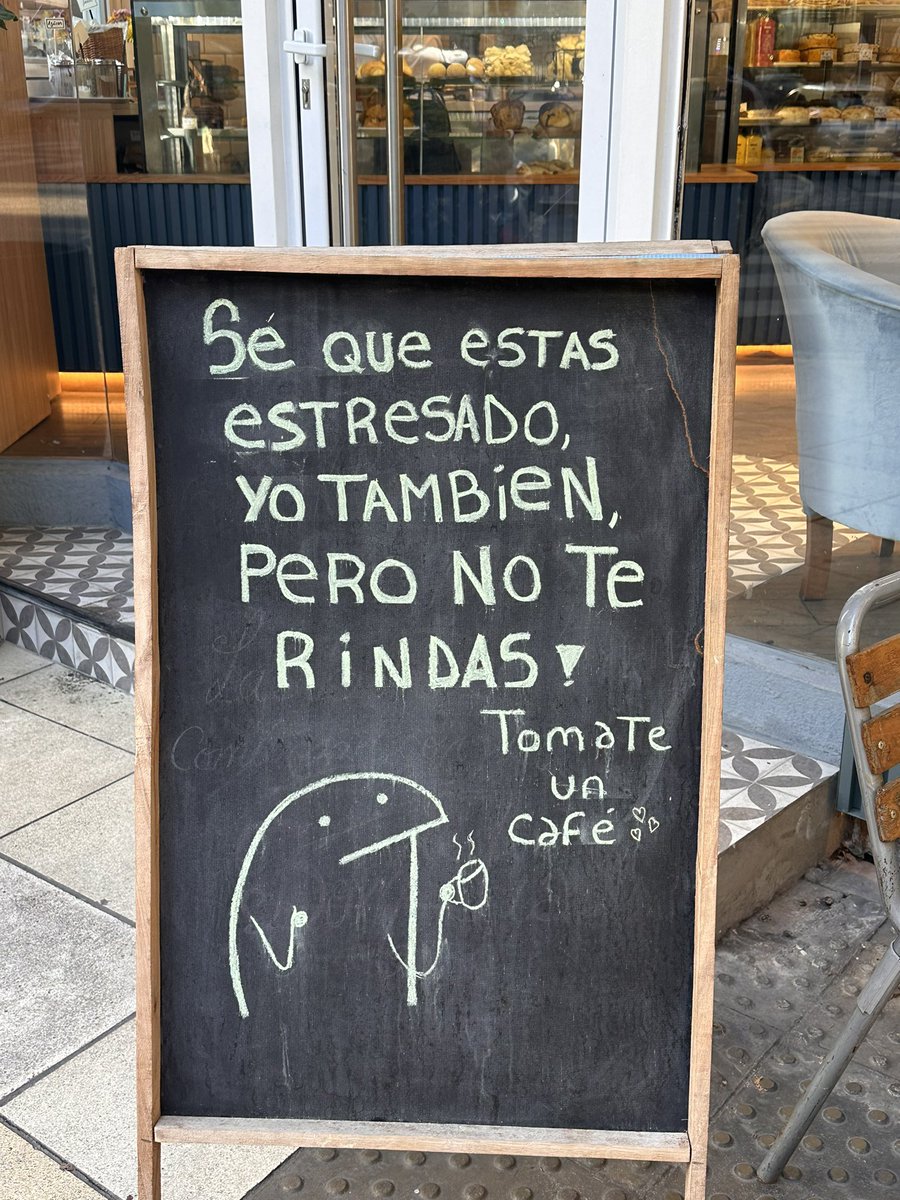 Sé QUE ESTAS
ESTRESADO,
YO TAMBIEN,
PERO NO TE
RINDAS!
TomaTe
un
café